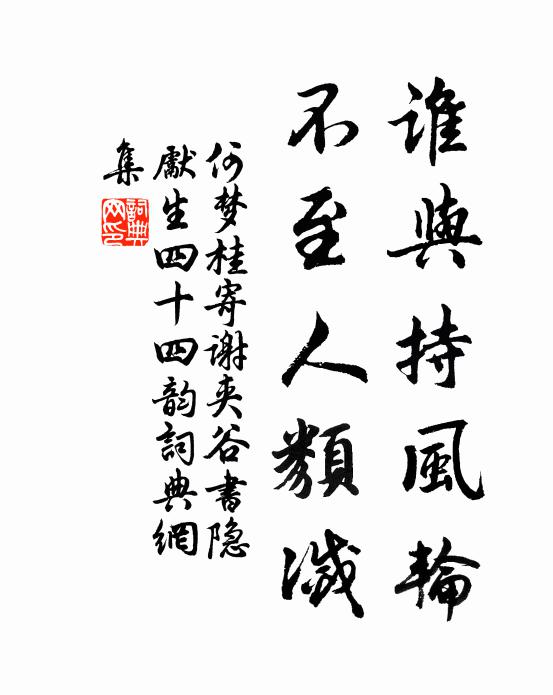 誰與持風輪
不至人類滅
何梦桂寄谢夾谷書隐
獻生四十四韵詞典網
集
詞典
网印